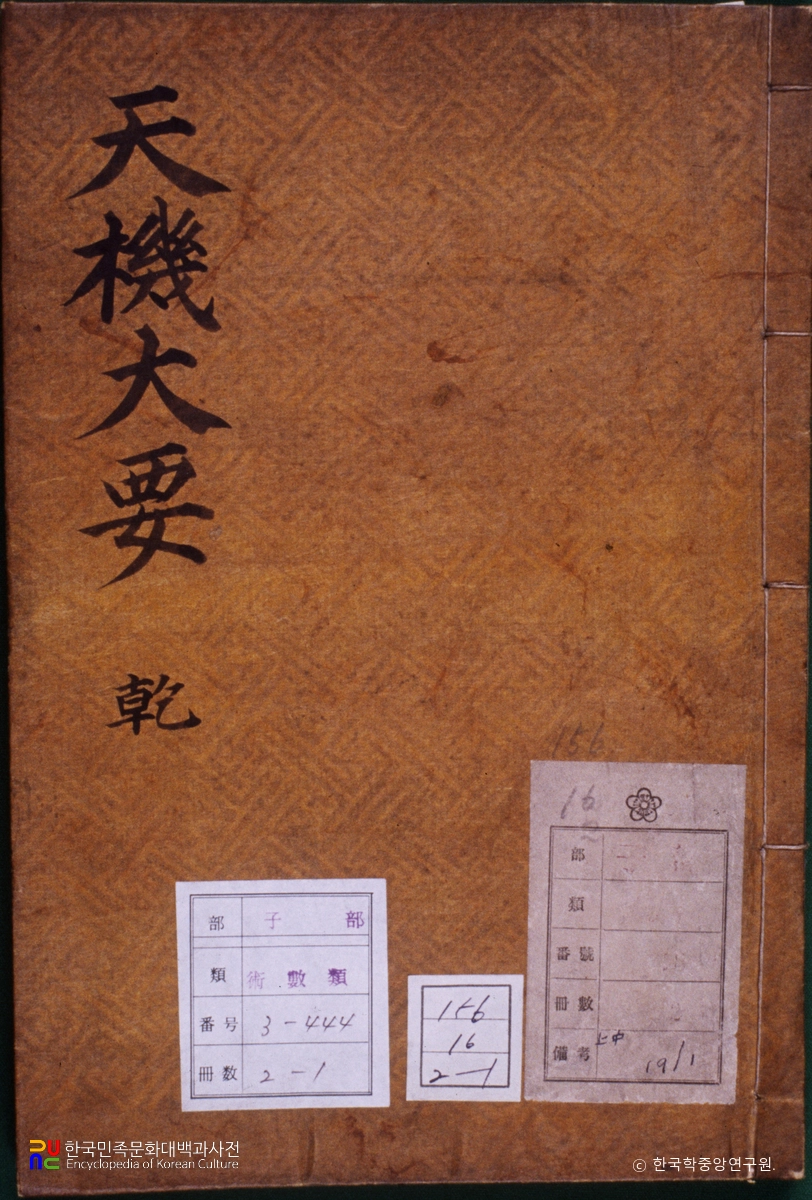 天機大要
乾
156
16
部 子 部
類 術數類
番号 3-444
冊数 2-1
156
16
2-1
部
類
番號
冊數
備考 上中
19/1
한국민족문화대백과사전
Encyclopedia of Korean Culture
© 한국학중앙연구원.